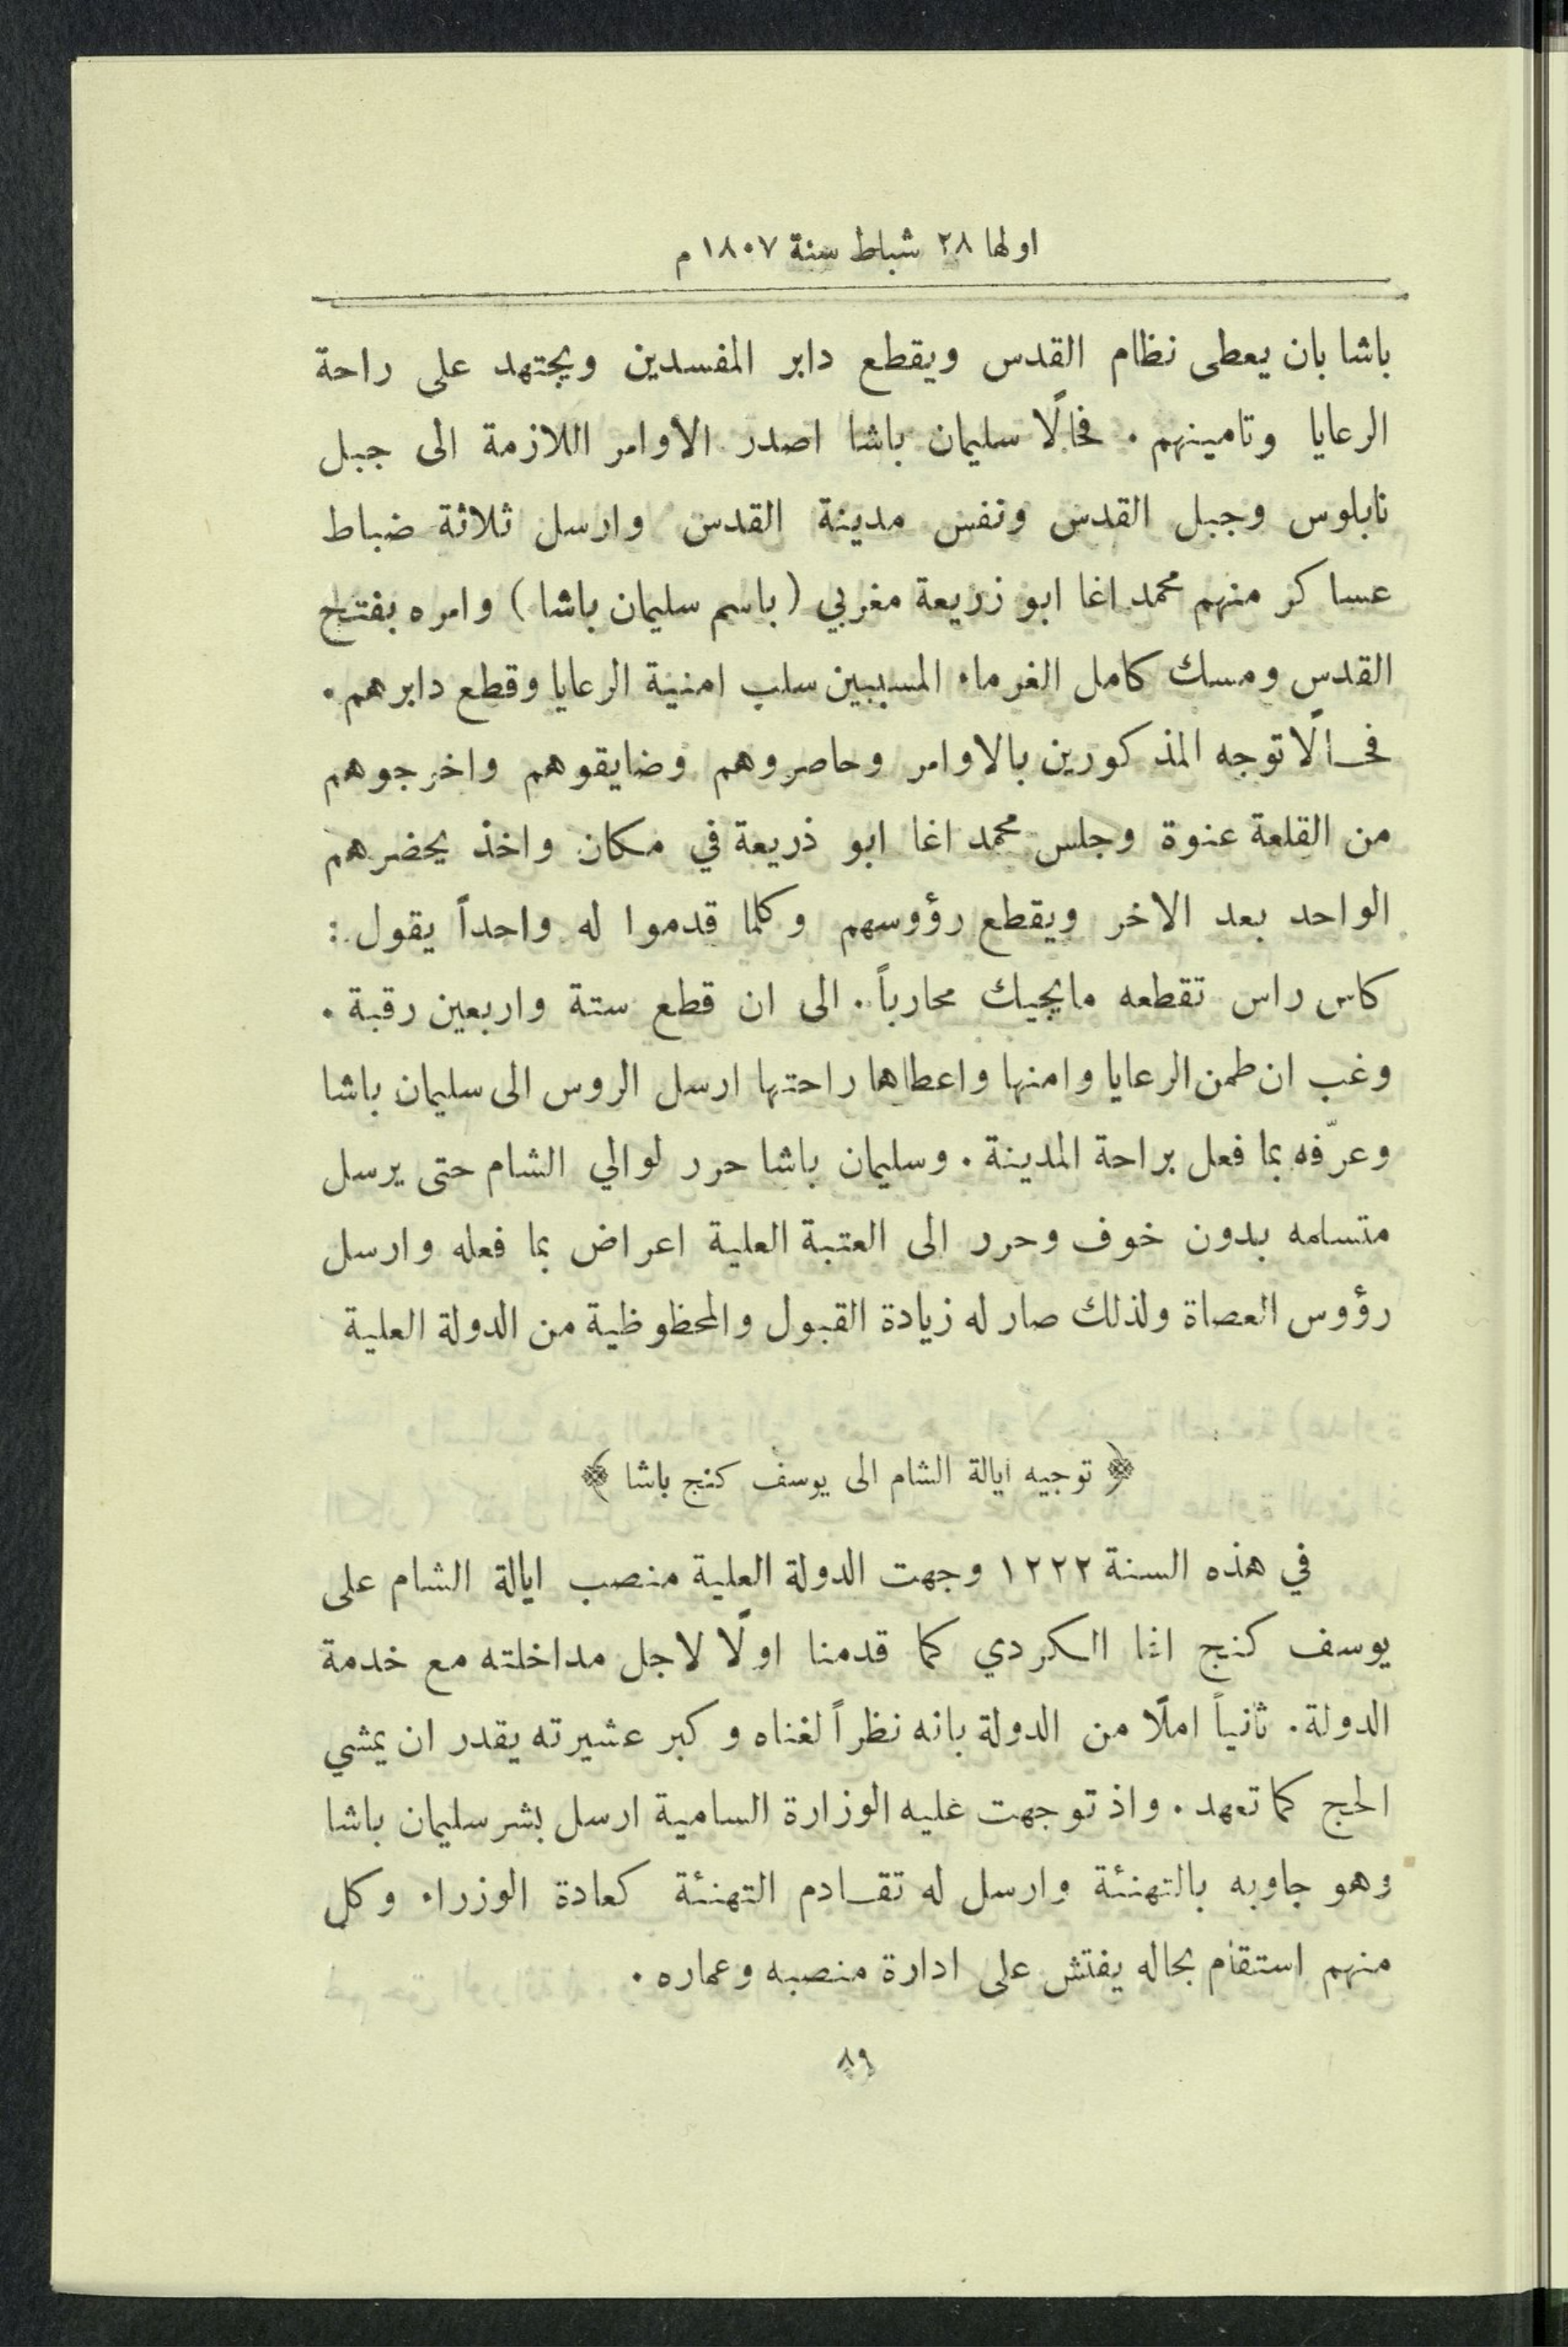 اولها ٢٨ شباط سنة ١٨٠٧ م
باشا بان يعطى نظام القدس ويقطع دابر المفسدين ويجتهد على راحة
الرعايا وتامينهم . فحالًا سليمان باشا اصدر الاوامر اللازمة الى جبل
نابلوس وجبل القدس ونفس مدينة القدس وارسل ثلاثة ضباط
عساكر منهم محمد اغا ابو زريعة مغربي (باسم سليمان باشا) وامره بفتح
القدس ومسك كامل الغرماء المسببين سلب امنية الرعايا وقطع دابرهم .
فحالًا توجه المذكورين بالاوامر وحاصروهم وضايقوهم واخرجوهم
من القلعة عنوة وجلس محمد اغا ابو ذريعة في مكان واخذ يحضرهم
الواحد بعد الاخر ويقطع رؤوسهم وكلما قدموا له واحداً يقول :
كاس راس تقطعه مايجيك محارباً . الى ان قطع ستة واربعين رقبة .
وغب ان طمن الرعايا وامنها واعطاها راحتها ارسل الروس الى سليمان باشا
وعرّفه بما فعل براحة المدينة . وسليمان باشا حرر لوالي الشام حتى يرسل
متسلمه بدون خوف وحرر الى العتبة العلية اعراض بما فعله وارسل
رؤوس العصاة ولذلك صار له زيادة القبول والمحظوظية من الدولة العلية
﴿ توجيه ايالة الشام الى يوسف كنج باشا ﴾
في هذه السنة ١٢٢٢ وجهت الدولة العلية منصب ايالة الشام على
يوسف كنج اغا الكردي كما قدمنا اولًا لاجل مداخلته مع خدمة
الدولة . ثانياً املًا من الدولة بانه نظراً لغناه وكبر عشيرته يقدر ان يمشي
الحج كما تعهد . واذ توجهت عليه الوزارة السامية ارسل بشر سليمان باشا
وهو جاوبه بالتهنئة وارسل له تقادم التهنئة كعادة الوزراء وكل
منهم استقام بحاله يفتش على ادارة منصبه وعماره .
٨٩